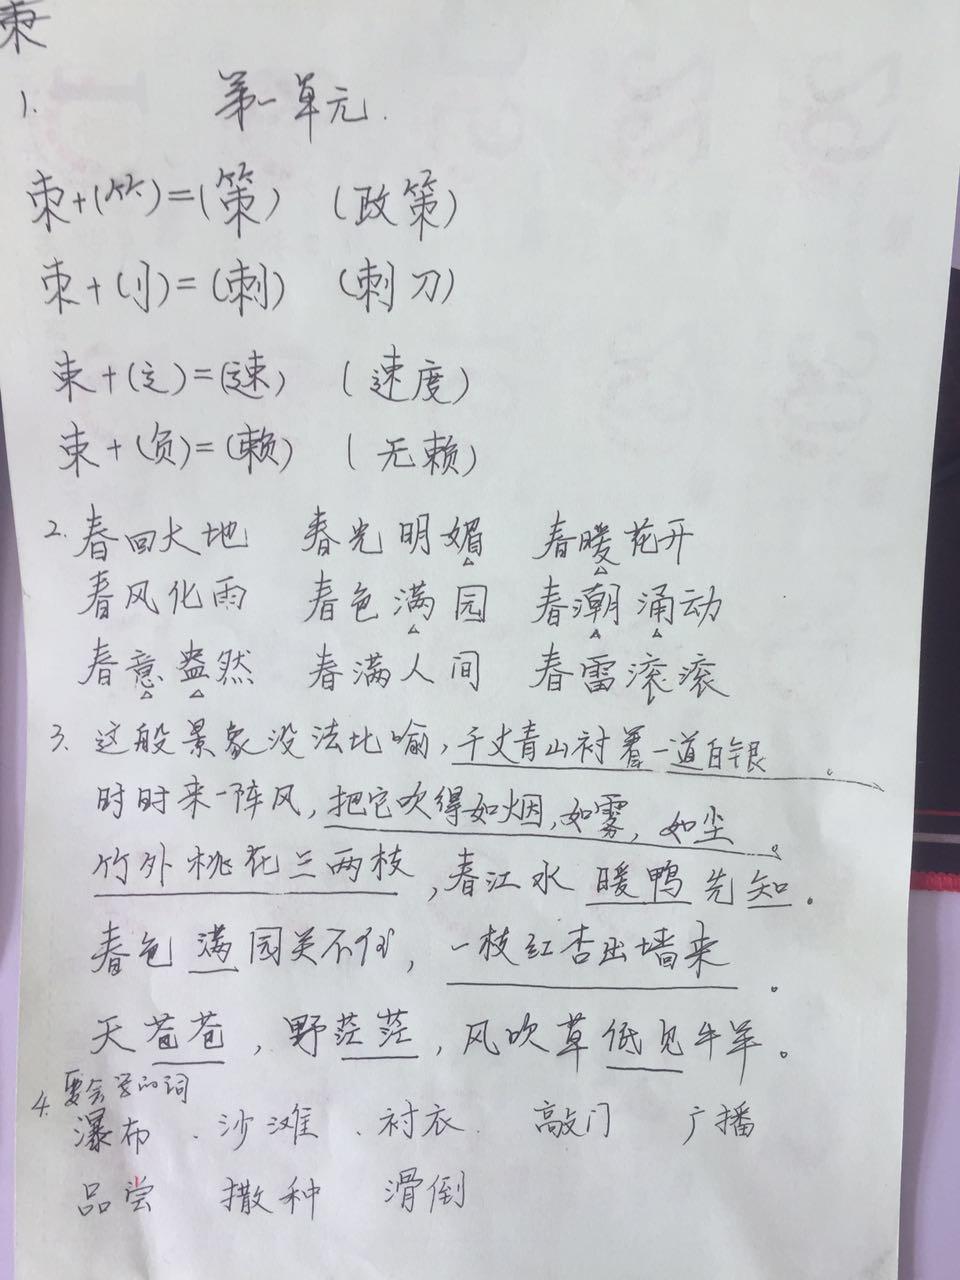 束
1. 第一单元.
朿+(⺮)=(策) (政策)
朿+(刂)=(刺) (刺刀)
束+(辶)=(速) (速度)
束+(负)=(赖) (无赖)
2. 春回大地 春光明媚 春暖花开
春风化雨 春色满园 春潮涌动
春意盎然 春满人间 春雷滚滚
3. 这般景象没法比喻,千丈青山衬着一道白银。
时时来一阵风,把它吹得如烟,如雾,如尘。
竹外桃花三两枝,春江水暖鸭先知。
春色满园关不住,一枝红杏出墙来。
天苍苍,野茫茫,风吹草低见牛羊。
4. 要会写的词
瀑布、沙滩、衬衣. 敲门 广播
品尝 撒种 滑倒